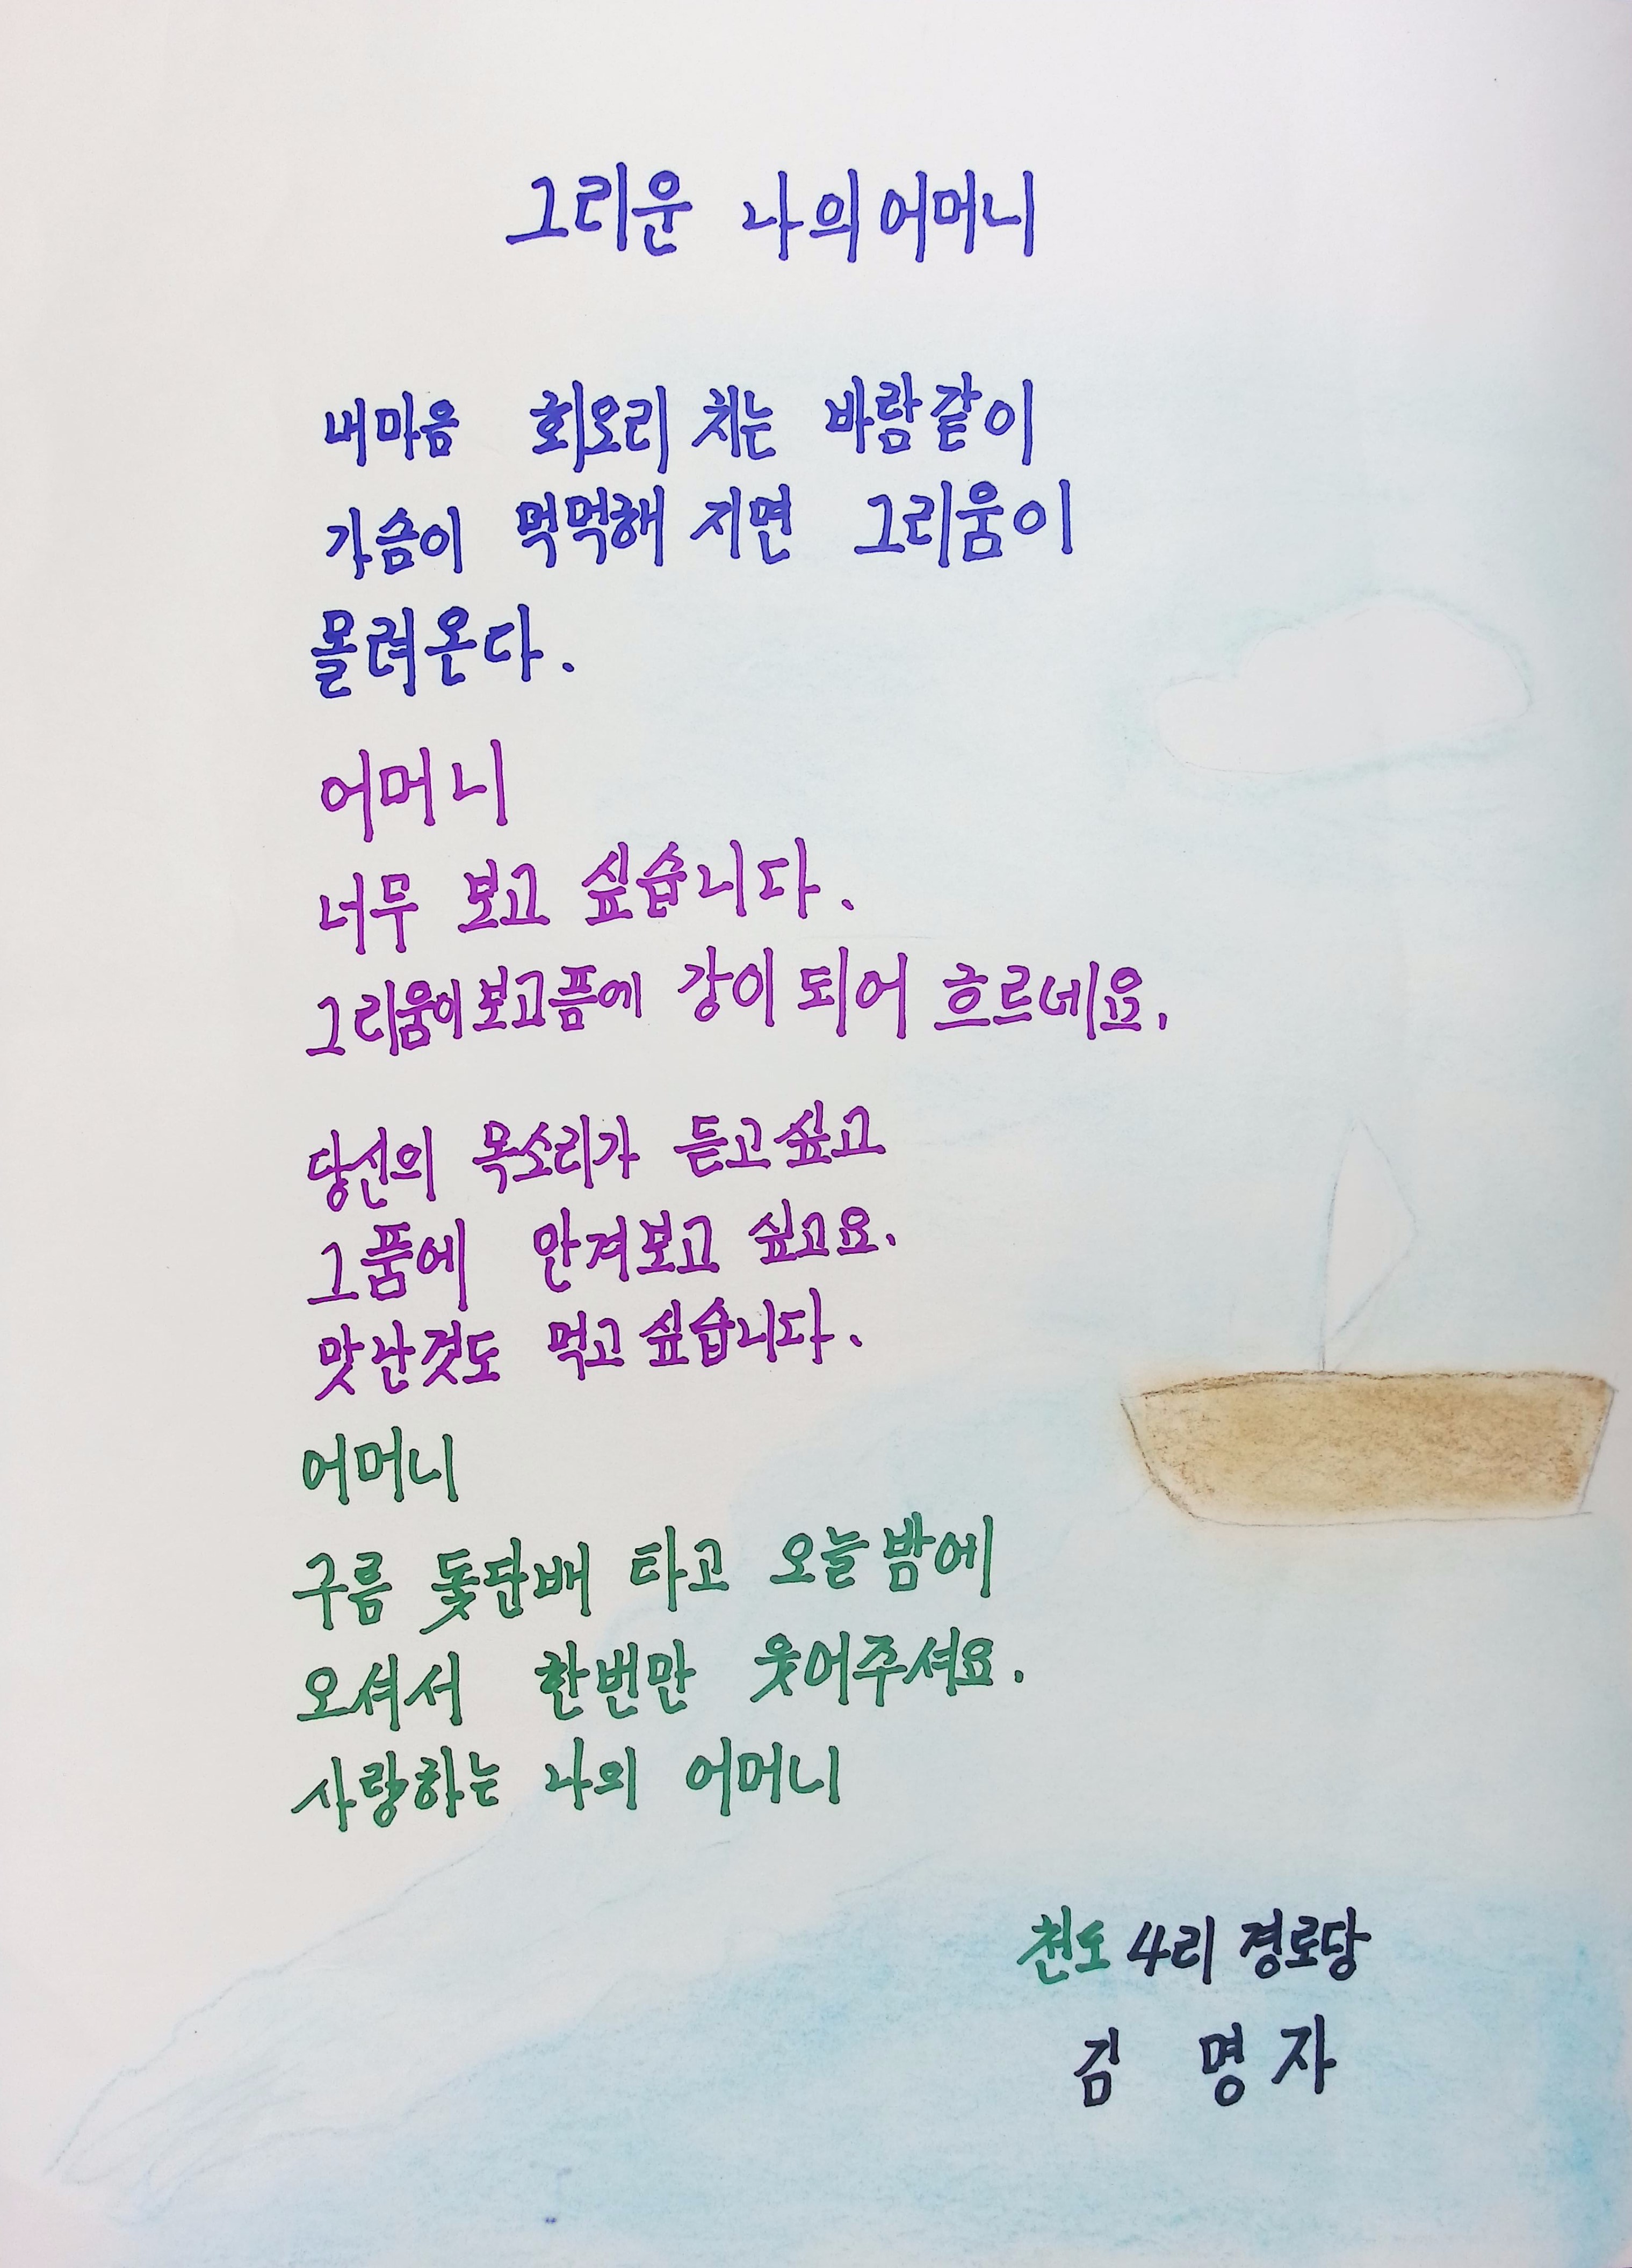 그리운 나의 어머니
내마음 회오리 치는 바람같이
가슴이 먹먹해 지면 그리움이
몰려온다.
어머니
너무 보고 싶습니다.
그리움이 보고픔에 강이 되어 흐르네요.
당신의 목소리가 듣고 싶고
그 품에 안겨보고 싶고요.
맛난것도 먹고 싶습니다.
어머니
구름 돛단배 타고 오늘 밤에
오셔서 한번만 웃어주셔요.
사랑하는 나의 어머니
천도 4리 경로당
김 명 자